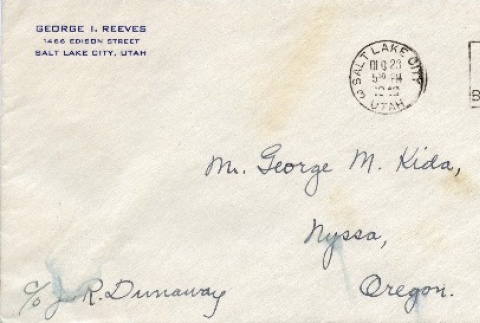 GEORGE I. REEVES
1466 EDISON STREET
SALT LAKE CITY, UTAH
SALT LAKE CITY
DEC 23
5 30 PM
UTAH
B
Mr. George M. Kida,
Nyssa,
Oregon.
c/o J. R. Dunaway